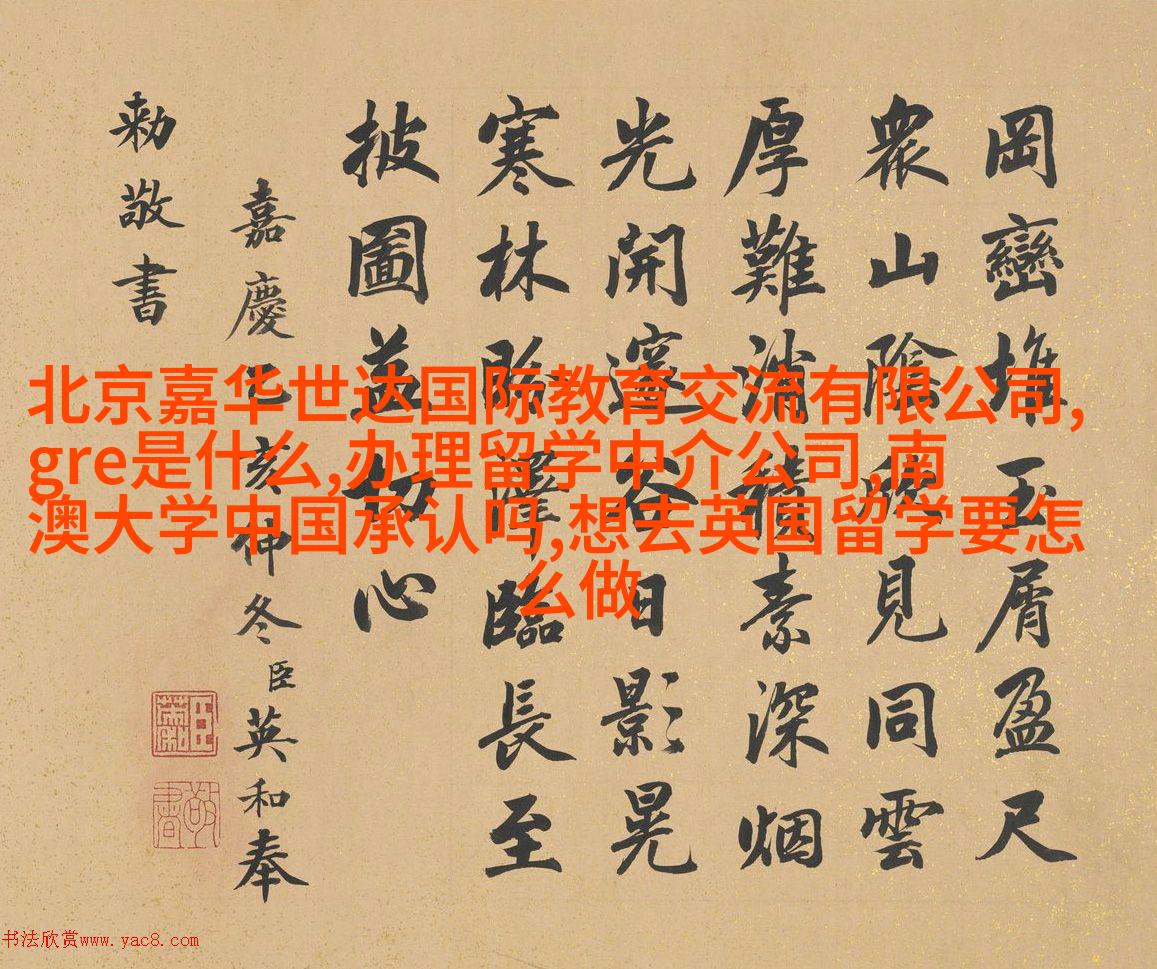 岡巒堆玉屑盈尺
衆山陰見同雲
厚難消積素深烟
光開邃谷日影晃
寒林臨長至
披圖益心
嘉慶乙亥仲冬臣英和奉
勅敬書
敬書
北京嘉华世达国际教育交流有限公司,
gre是什么,办理留学中介公司,南
澳大学中国承认吗,想去英国留学要怎
么做
书法欣赏www.yac8.com